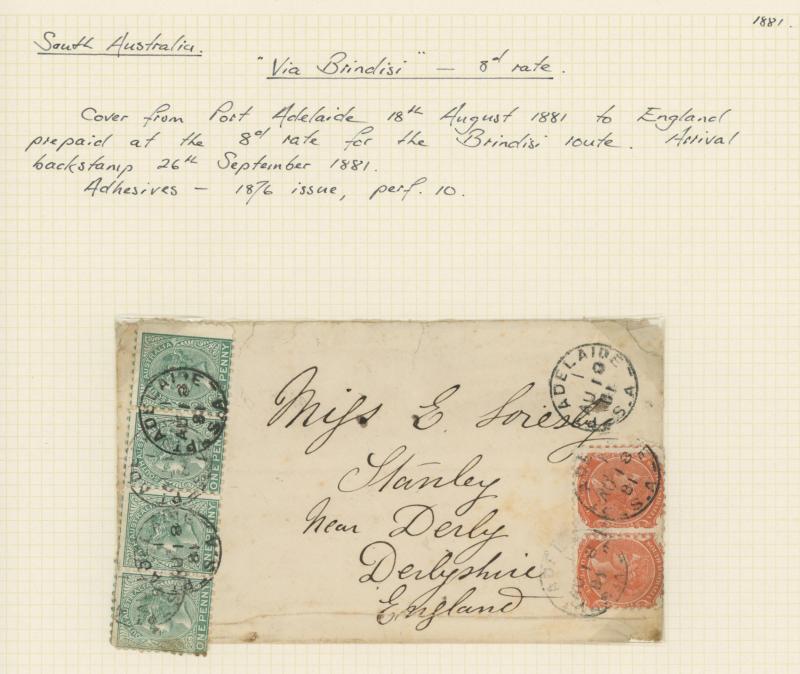 1881.
South Australia.
"Via Brindisi" — 8d rate.
Cover from Port Adelaide 18th August 1881 to England
prepaid at the 8d rate for the Brindisi route. Arrival
backstamp 26th September 1881.
Adhesives — 1876 issue, perf. 10.
AUSTRALIA
ONE PENNY
PT ADELAIDE
AU 18
81
S.A
Miss E. Soresby
Stanley
Near Derby
Derbyshire
England
ONE PENNY
ONE PENNY
ONE PENNY